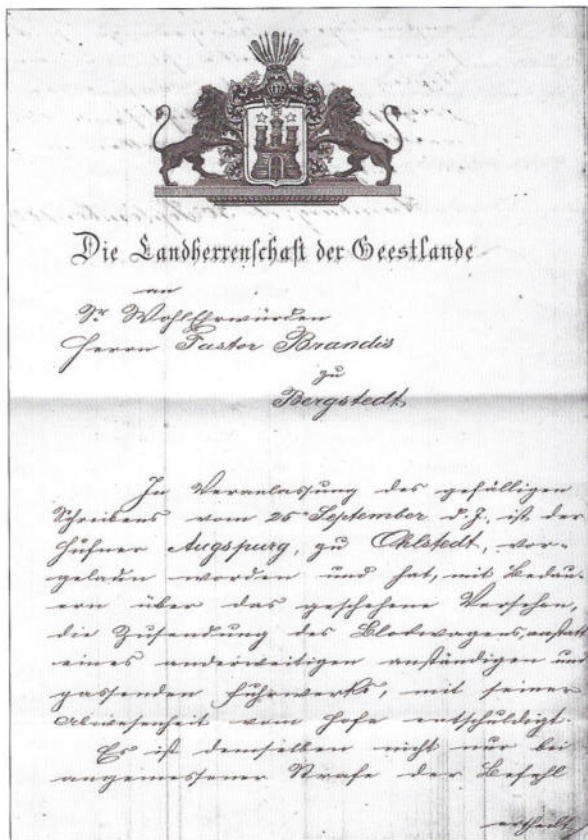 Die Landherrenschaft der Geestlande
an
Sr WohlEhrwürden
Herrn Pastor Brandis
zu
Bergstedt
In Veranlassung des gefälligen
Schreibens vom 25 September d. J. ist der
Hüfner Augspurg, zu Ohlstedt, vor-
geladen worden und hat, mit Bedau-
ern über das geschehene Versehen,
die Zusendung des Blockwagens, anstatt
eines anderweitigen anständigen und
passenden Fuhrwerks, mit seiner
Abwesenheit vom Hofe entschuldigt.
Es ist demselben nicht nur bei
angemessener Strafe der Befehl
ertheilt